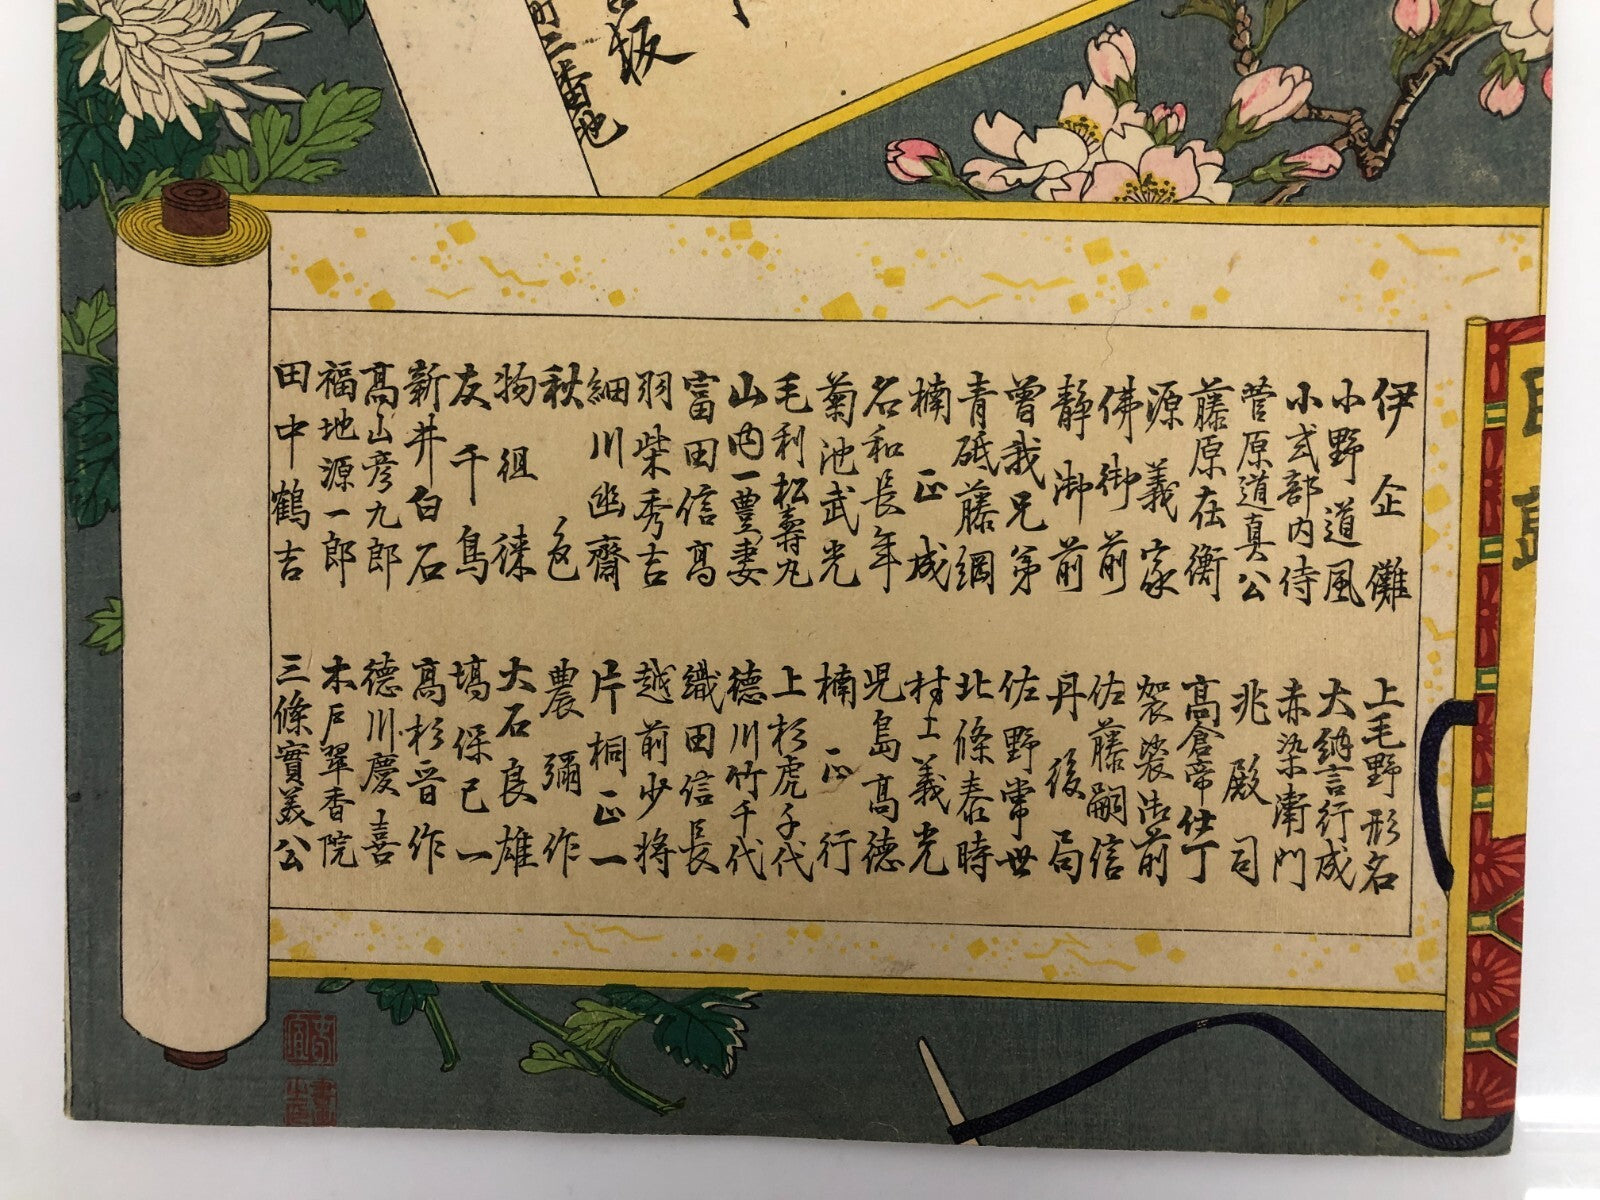 板
二番地
目
伊企儺
小野道風
小式部内侍
菅原道真公
藤原在衡
源義家
佛御前
静御前
曽我兄弟
青砥藤綱
楠正成
名和長年
菊池武光
毛利松壽丸
山内一豊妻
富田信高
羽柴秀吉
細川幽齋
秋色
物徂徠
友千鳥
新井白石
高山彦九郎
福地源一郎
田中鶴吉
上毛野形名
大納言行成
赤染衛門
兆殿司
高倉帝仕丁
袈裟御前
佐藤嗣信
丹後局
佐野常世
北條泰時
村上義光
児島高徳
楠正行
上杉虎千代
德川竹千代
織田信長
越前少将
片桐正一
農彌作
大石良雄
塙保己一
高杉晋作
德川慶喜
木戸翠香院
三條實美公